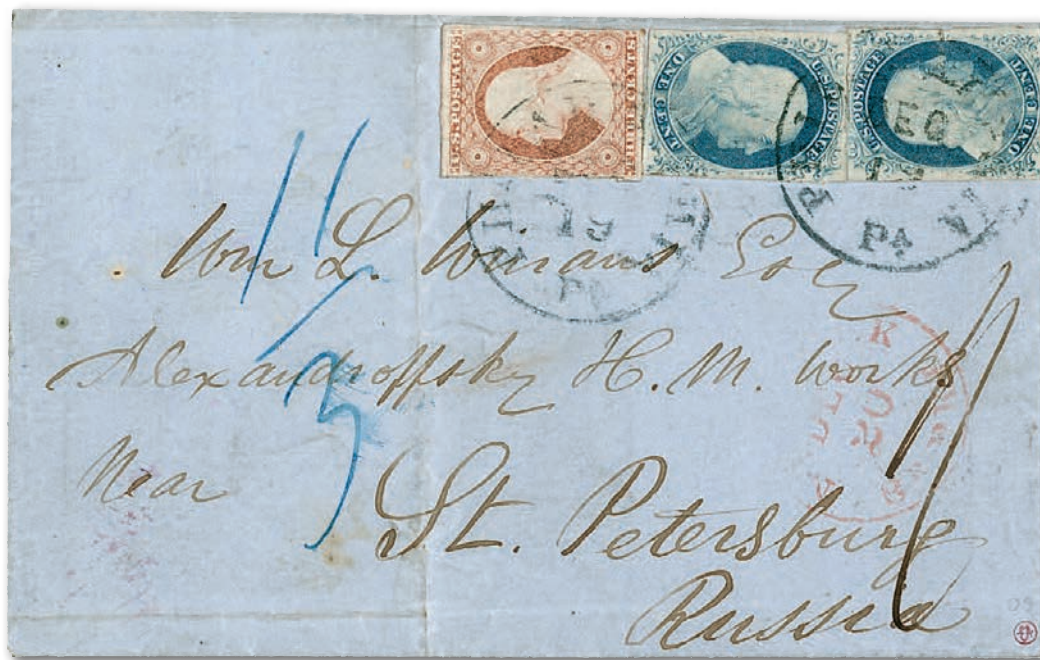 U.S. POSTAGE THREE CENTS
U.S. POSTAGE. ONE CENT.
U.S. POSTAGE ONE CENT
DEC
19
PA
19
PA
11/3
Wm L. Winans Esq
Alexandroffsky H. M. Works
Near
St. Petersburg
Russia
20